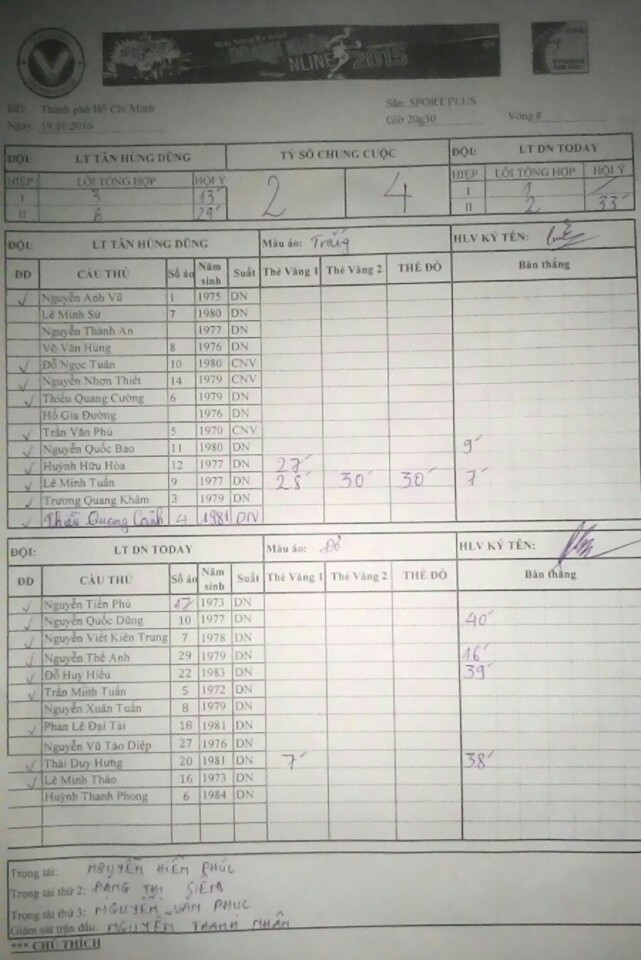 DOANH NHÂN
NLINE 2015
BD: Thành phố Hồ Chí Minh Sân: SPORT PLUS
Ngày 19.01.2016 Giờ 20g30 Vòng 8
ĐỘI: LT TÂN HÙNG DŨNG TỶ SỐ CHUNG CUỘC ĐỘI: LT DN TODAY
HIỆP LỖI TỔNG HỢP HỘI Ý 2 4 HIỆP LỖI TỔNG HỢP HỘI Ý
I 3 13' I 1
II 6 29' II 2 33'
ĐỘI: LT TÂN HÙNG DŨNG Màu áo: Trắng HLV KÝ TÊN:
ĐD CẦU THỦ Số áo Năm sinh Suất Thẻ Vàng 1 Thẻ Vàng 2 THẺ ĐỎ Bàn thắng
✓ Nguyễn Anh Vũ 1 1975 DN
Lê Minh Sử 7 1980 DN
Nguyễn Thành An 1977 DN
Võ Văn Hùng 8 1976 DN
✓ Đỗ Ngọc Tuân 10 1980 CNV
✓ Nguyễn Nhơn Thiết 14 1979 CNV
✓ Thiều Quang Cường 6 1979 DN
Hồ Gia Đường 1976 DN
✓ Trần Văn Phú 5 1970 CNV
✓ Nguyễn Quốc Bảo 11 1980 DN 9'
✓ Huỳnh Hữu Hòa 12 1977 DN 27'
✓ Lê Minh Tuấn 9 1977 DN 28' 30' 30' 7'
✓ Trương Quang Khâm 3 1979 DN
✓ Thiều Quang Cảnh 4 1981 DN
ĐỘI: LT DN TODAY Màu áo: Đỏ HLV KÝ TÊN:
ĐD CẦU THỦ Số áo Năm sinh Suất Thẻ Vàng 1 Thẻ Vàng 2 THẺ ĐỎ Bàn thắng
✓ Nguyễn Tiến Phú 17 1973 DN
✓ Nguyễn Quốc Dũng 10 1977 DN 40'
✓ Nguyễn Viết Kiên Trung 7 1978 DN
✓ Nguyễn Thế Anh 29 1979 DN 16'
✓ Đỗ Huy Hiếu 22 1983 DN 39'
✓ Trần Minh Tuấn 5 1972 DN
Nguyễn Xuân Tuấn 8 1979 DN
✓ Phan Lê Đại Tài 18 1981 DN
Nguyễn Vũ Tào Diệp 27 1976 DN
✓ Thái Duy Hưng 20 1981 DN 7' 38'
✓ Lê Minh Thảo 16 1973 DN
Huỳnh Thanh Phong 6 1984 DN
Trọng tài: NGUYỄN HIỀN PHÚC
Trọng tài thứ 2: ĐẶNG THỊ SIÊM
Trọng tài thứ 3: NGUYỄN VĂN PHÚC
Giám sát trận đấu: NGUYỄN THANH NHÂN
*** CHÚ THÍCH